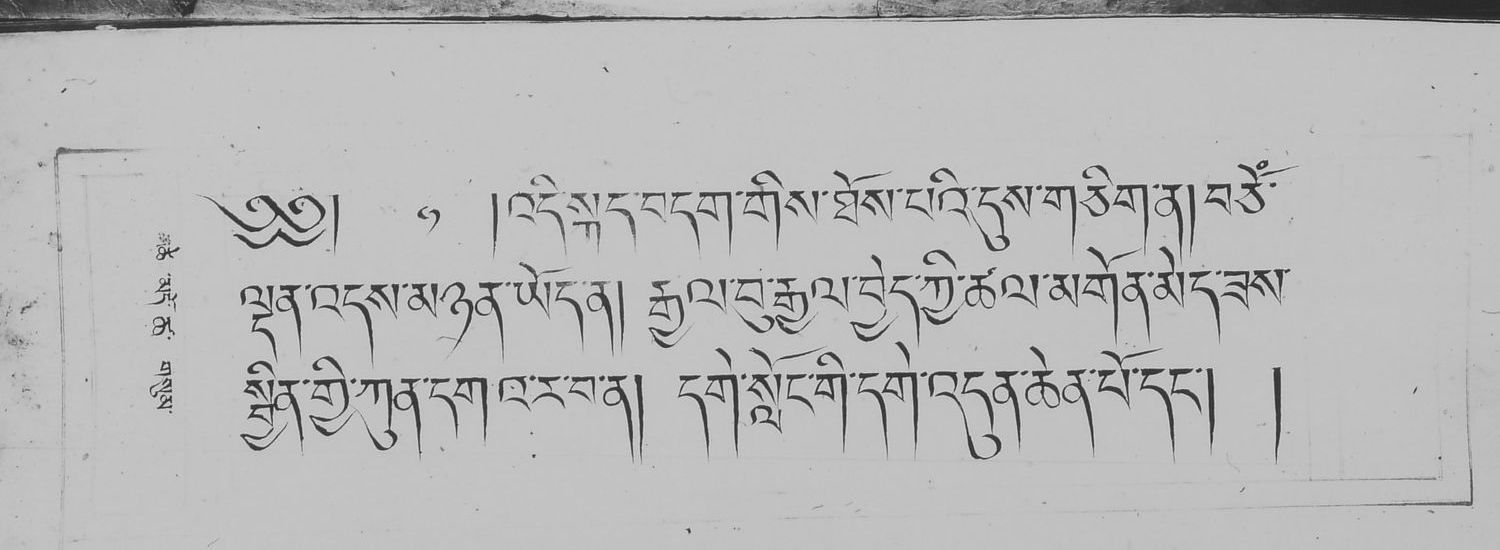 ༄༅། ༡ །འདི་སྐད་བདག་གིས་ཐོས་པའི་དུས་གཅིག་ན། བཅོཾ་
ལྡན་འདས་མཉན་ཡོད་ན། རྒྱལ་བུ་རྒྱལ་བྱེད་ཀྱི་ཚལ་མགོན་མེད་ཟས་
སྦྱིན་གྱི་ཀུན་དགའ་ར་བ་ན། དགེ་སློང་གི་དགེ་འདུན་ཆེན་པོ་དང་། །